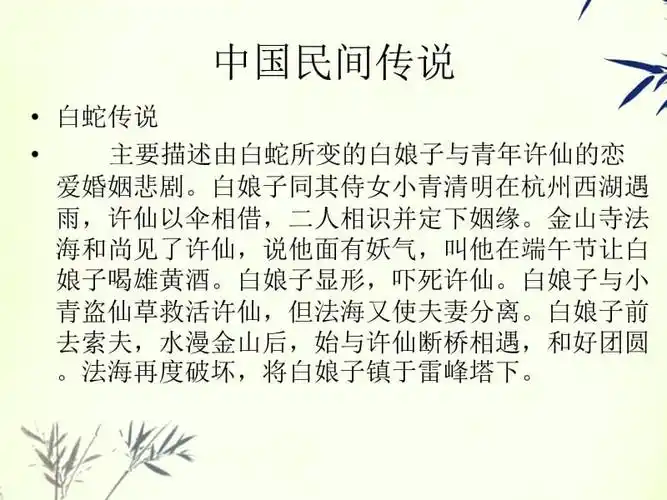 中国民间传说
• 白蛇传说
• 主要描述由白蛇所变的白娘子与青年许仙的恋
爱婚姻悲剧。白娘子同其侍女小青清明在杭州西湖遇
雨，许仙以伞相借，二人相识并定下姻缘。金山寺法
海和尚见了许仙，说他面有妖气，叫他在端午节让白
娘子喝雄黄酒。白娘子显形，吓死许仙。白娘子与小
青盗仙草救活许仙，但法海又使夫妻分离。白娘子前
去索夫，水漫金山后，始与许仙断桥相遇，和好团圆
。法海再度破坏，将白娘子镇于雷峰塔下。